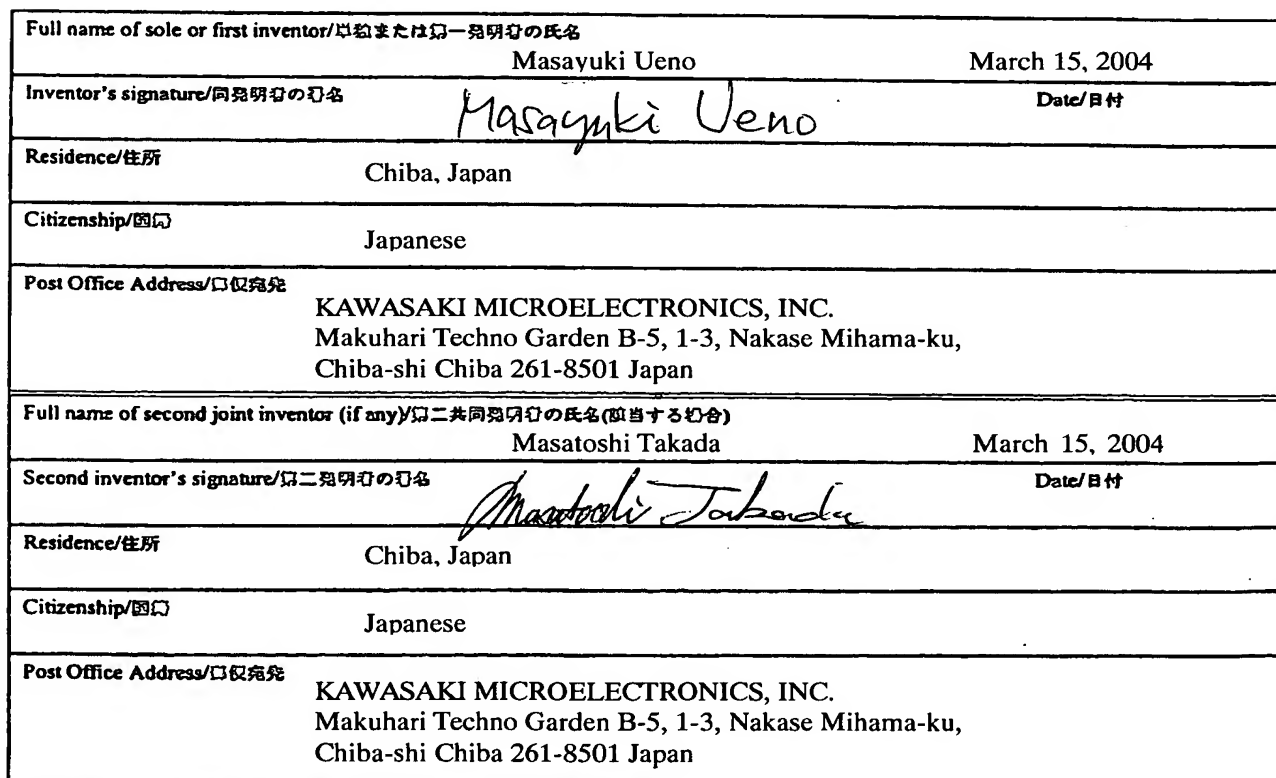 Full name of sole or first inventor/または一発明の氏名
Masayuki Ueno March 15, 2004
Inventor's signature/同発明の名 Masayuki Ueno Date/日付
Residence/住所
Chiba, Japan
Citizenship/
Japanese
Post Office Address/
KAWASAKI MICROELECTRONICS, INC.
Makuhari Techno Garden B-5, 1-3, Nakase Mihama-ku,
Chiba-shi Chiba 261-8501 Japan
Full name of second joint inventor (if any)/二共同の氏名(当する合)
Masatoshi Takada March 15, 2004
Second inventor's signature/二発明の名 Masatoshi Takada Date/日付
Residence/住所
Chiba, Japan
Citizenship/
Japanese
Post Office Address/
KAWASAKI MICROELECTRONICS, INC.
Makuhari Techno Garden B-5, 1-3, Nakase Mihama-ku,
Chiba-shi Chiba 261-8501 Japan